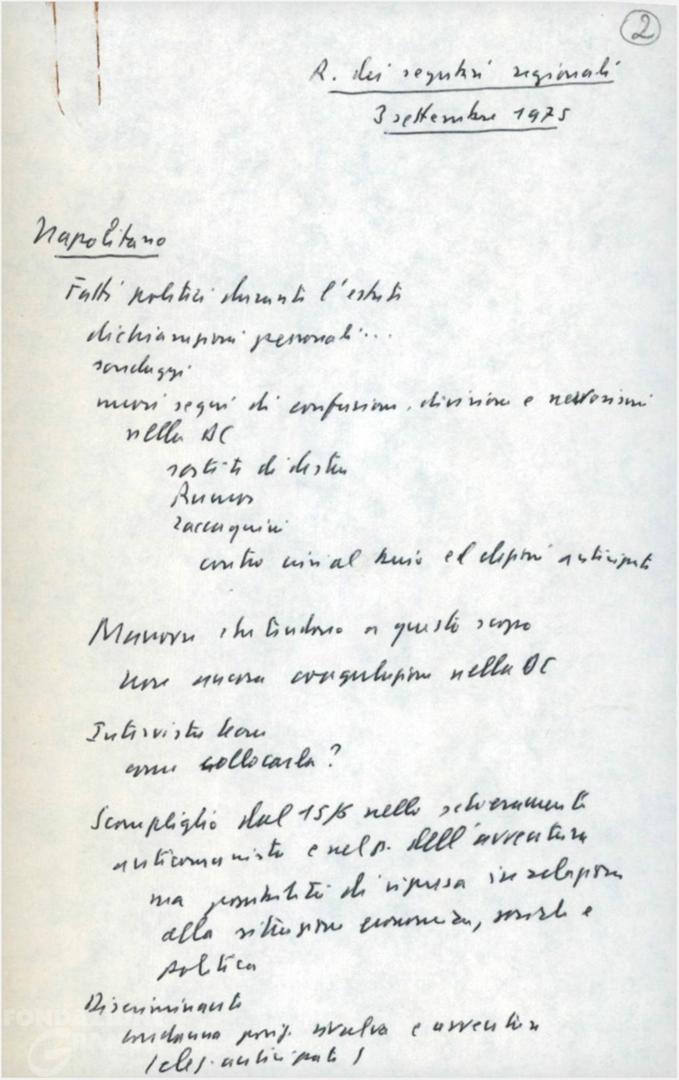 2
R. dei segretari regionali
3 settembre 1975
Napolitano
Fatti politici durante l'estate
dichiarazioni personali...
sondaggi
nuovi segni di confusione, divisione e nervosismo
nella DC
di destra
Rumor
Zaccagnini
contro elezioni anticipate
Manovre che tendono a questo scopo
non ancora coagulazione nella DC
Intervista Leone
come collocarla?
Scompiglio dal 15/6 nello schieramento
anticomunista e nel p. dell'avventura
ma possibilità di ripresa in relazione
alla situazione economica, sociale e
politica
Discriminante
condanna e avventura
(elez. anticipate)
FOND